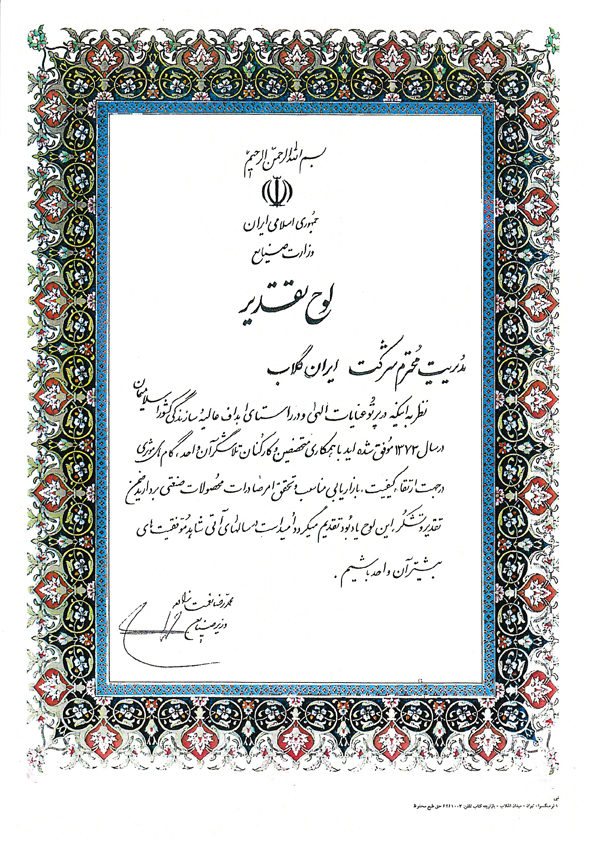 بسم الله الرحمن الرحیم
جمهوری اسلامی ایران
وزارت صنایع
لوح تقدیر
مدیریت محترم شرکت ایران گلاب
نظر به اینکه در پرتو عنایات الهی و در راستای اهداف عالیهٔ سازندگی کشور اسلامیمان
در سال ۱۳۷۳ موفق شده اید با همکاری متخصصین و کارکنان تلاشگر آن واحد، گام مؤثری
در جهت ارتقاء کیفیت، بازاریابی مناسب و تحقق امر صادرات محصولات صنعتی بردارید ضمن
تقدیر و تشکر، این لوح یادبود تقدیم میگردد امید است سالهای آتی شاهد موفقیت های
بیشتر آن واحد باشیم.
محمدرضا نعمت زاده
وزیر صنایع
حق طبع محفوظ